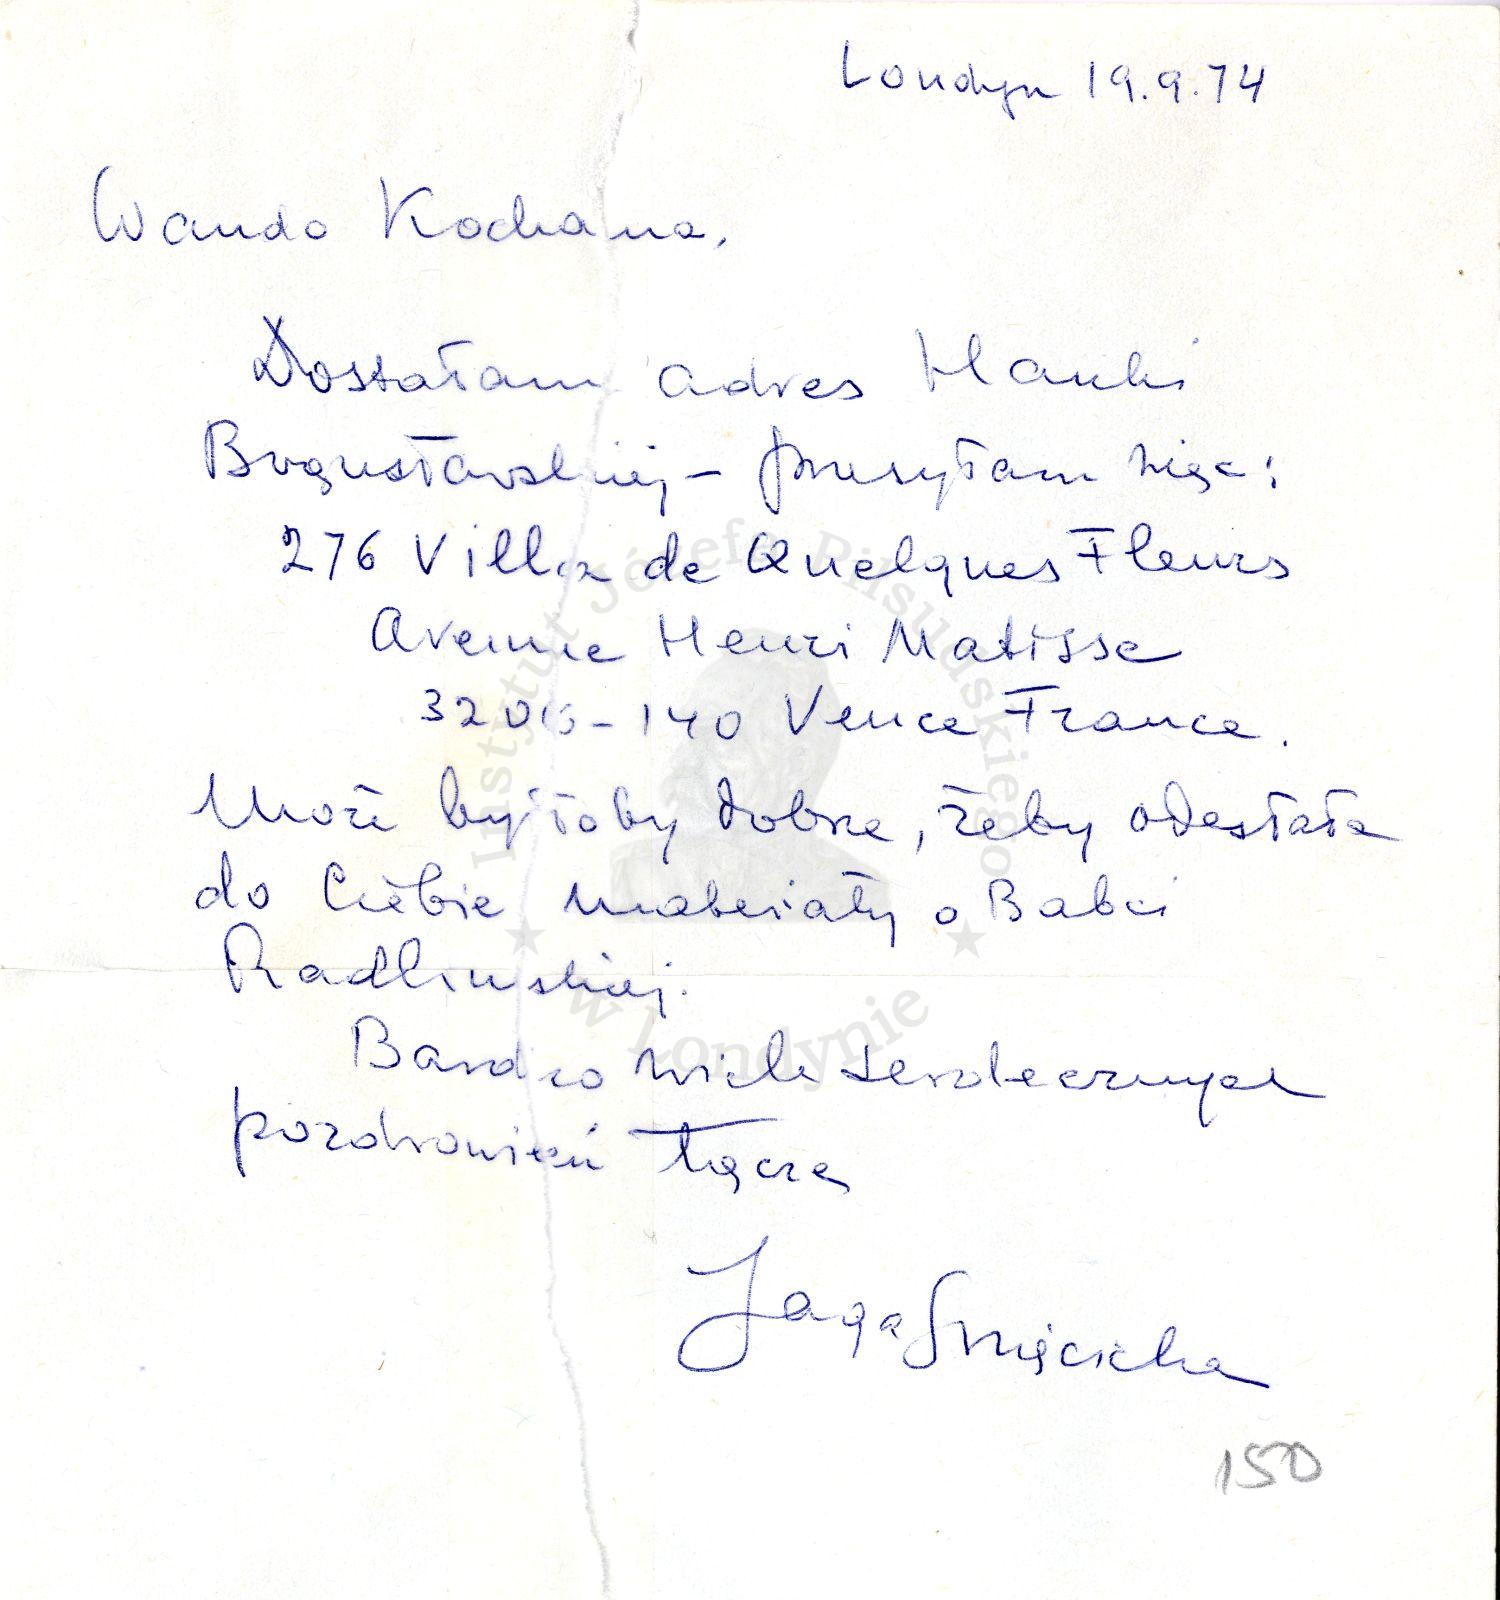 Londyn 19.9.74
Wando Kochana,
Dostałam adres Hanki
Bogusławskiej – przesyłam więc:
276 Villa de Quelques Fleurs
Avenue Henri Matisse
3200-140 Vence France.
Może byłoby dobrze, żeby odesłała
do Ciebie materiały o Babci
Radlinskiej.
Bardzo wiele serdecznych
pozdrowień łączę
Jaga
150
Instytut Józefa Piłsudskiego
w Londynie